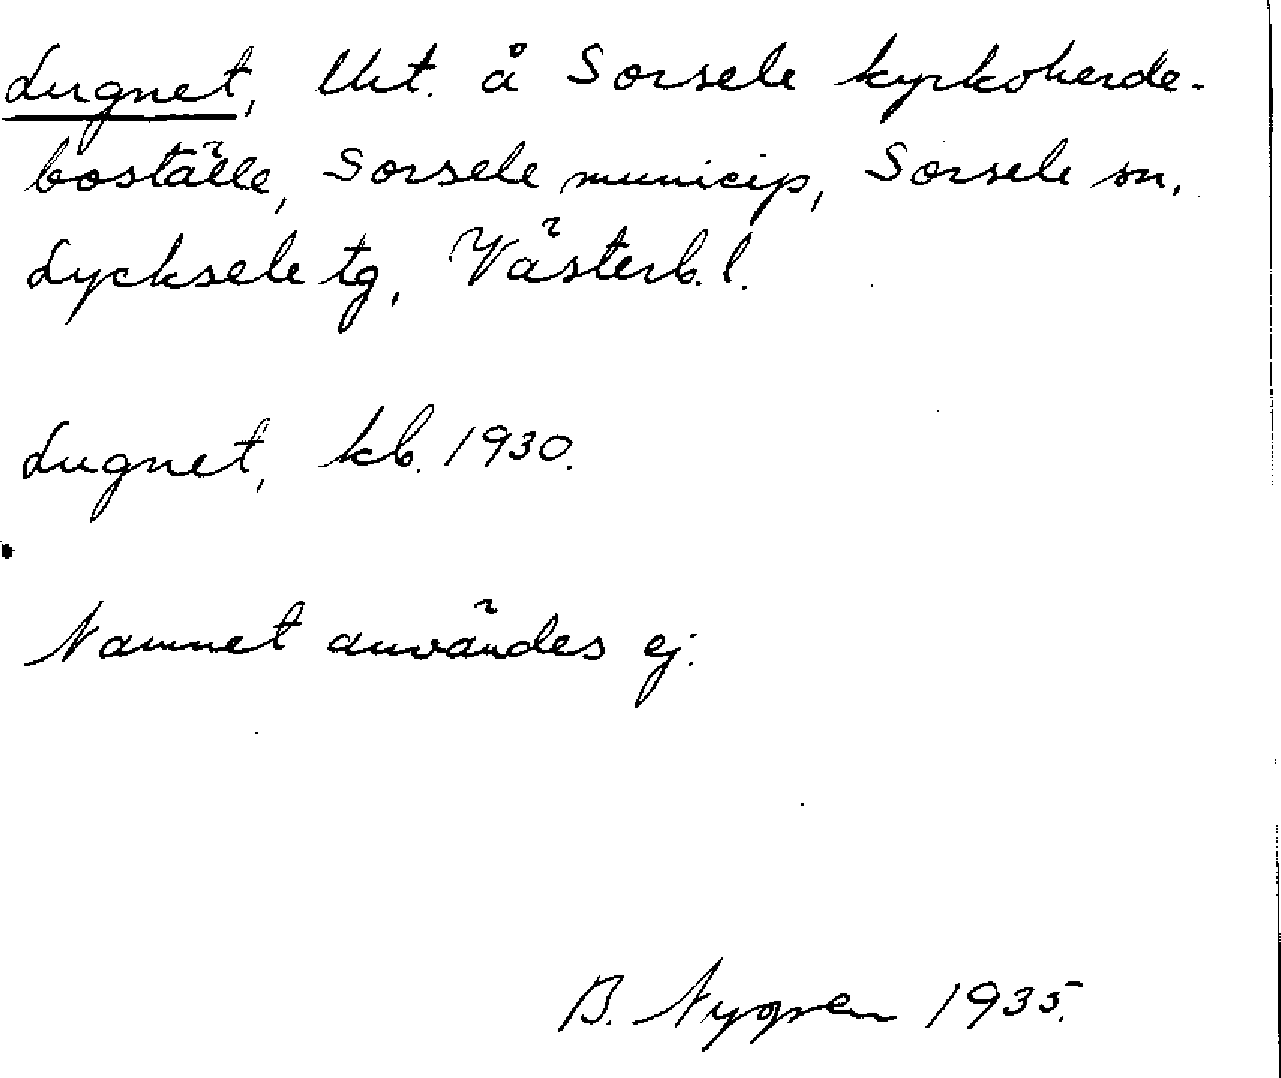 Lugnet, Uit. å Sorsele kyrkoherde-
boställe, Sorsele municip, Sorsele sn,
Lycksele tg, Västerb. l.
Lugnet, kb. 1930.
Namnet användes ej.
B. Nygren 1935.